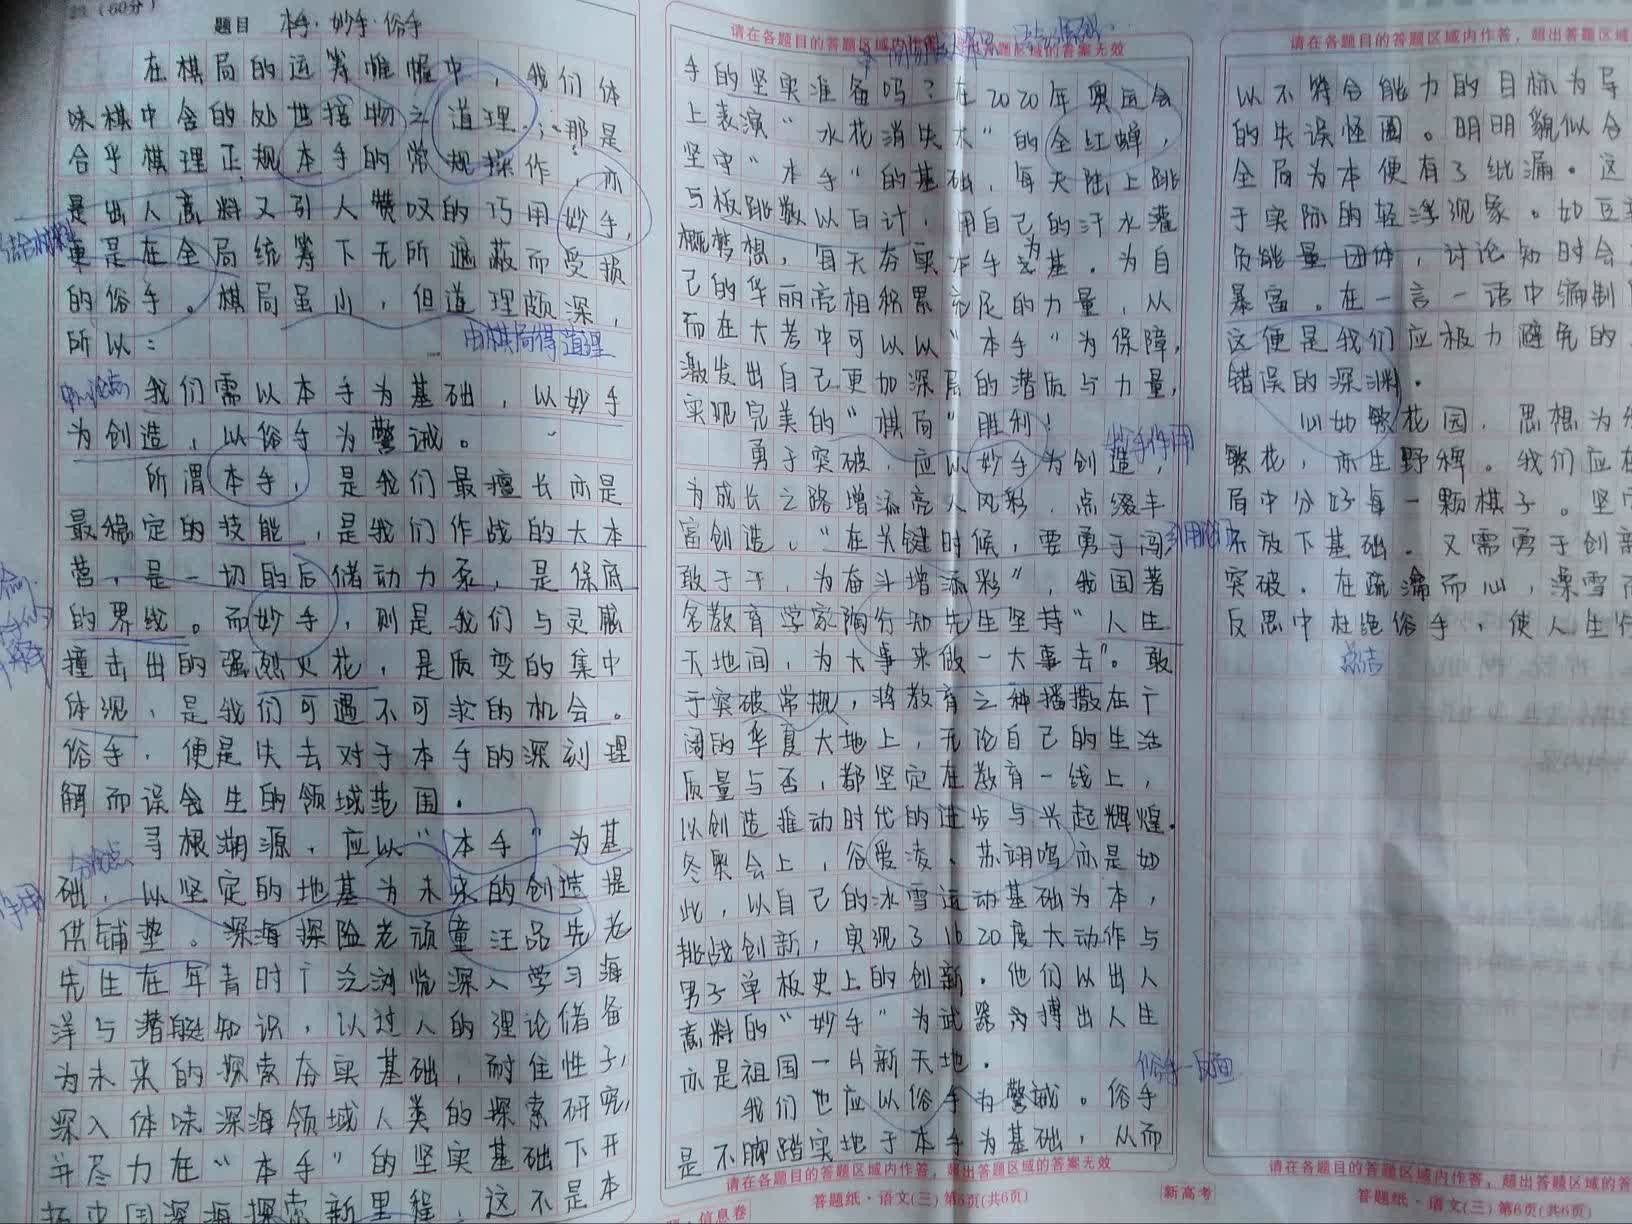 21（60分）
题目 本手·妙手·俗手
在棋局的运筹帷幄中，我们体
味棋中含的处世接物之道理，那是
合乎棋理正规本手的常规操作，亦
是出人意料又引人赞叹的巧用妙手，
更是在全局统筹下无所遮蔽而受损
的俗手。棋局虽小，但道理颇深，
所以：
由棋局得道理
我们需以本手为基础，以妙手
为创造，以俗手为警诫。
所谓本手，是我们最擅长亦是
最稳定的技能，是我们作战的大本
营，是一切的后储动力泵，是保底
的界线。而妙手，则是我们与灵感
撞击出的强烈火花，是质变的集中
体现，是我们可遇不可求的机会。
俗手，便是失去对于本手的深刻理
解而误会生的领域范围。
分论点
寻根溯源，应以“本手”为基
础，以坚定的地基为未来的创造提
供铺垫。深海探险老顽童汪品先老
先生在年青时广泛浏览深入学习海
洋与潜艇知识，以过人的理论储备
为未来的探索夯实基础，耐住性子，
深入体味深海领域人类的探索研究，
并尽力在“本手”的坚实基础下开
拓中国深海探索新里程，这不是本
作用
请在各题目的答题区域内作答，超出答题区域的答案无效
手的坚实准备吗？在2020年奥运会
上表演“水花消失术”的全红蝉，
坚守“本手”的基础，每天陆上跳
与板跳数以百计，用自己的汗水灌
概梦想，每天夯实本手为基，为自
己的华丽亮相积累充足的力量，从
而在大考中可以以“本手”为保障，
激发出自己更加深层的潜质与力量，
实现完美的“棋局”胜利！
妙手作用
勇于突破，应以妙手为创造，
为成长之路增添亮人风彩，点缀丰
富创造。“在关键时候，要勇于闯，
敢于干，为奋斗增添彩”，我国著
名教育学家陶行知先生坚持“人生
天地间，为大事来做一大事去”。敢
于突破常规，将教育之种播撒在广
阔的华夏大地上，无论自己的生活
质量与否，都坚定在教育一线上，
以创造推动时代的进步与兴起辉煌。
冬奥会上，谷爱凌、苏翊鸣亦是如
此，以自己的冰雪运动基础为本，
挑战创新，实现了1620度大动作与
男子单板史上的创新。他们以出人
意料的“妙手”为武器为搏出人生
亦是祖国一片新天地。
俗手—反面
我们也应以俗手为警诫。俗手
是不脚踏实地于本手为基础，从而
请在各题目的答题区域内作答，超出答题区域的答案无效
答题纸·语文(三) 第6页(共6页)
新高考
请在各题目的答题区域内作答，超出答题区
以不符合能力的目标为导
的失误怪圈。明明貌似合
全局为本便有了纰漏。这
于实际的轻浮现象。如豆
负能量团体，讨论知时会
暴富。在一言一语中编制
这便是我们应极力避免的
错误的深渊。
心如繁花园，思想为
繁花，亦生野稗。我们应在
局中分好每一颗棋子。坚
不放下基础，又需勇于创新
突破。在疏瀹而心，澡雪而
反思中杜绝俗手，使人生
总结
请在各题目的答题区域内作答，超出答题区域的答
答题纸·语文(三) 第6页(共6页)
信息卷